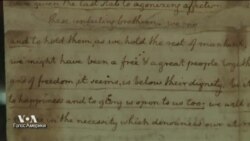 have given the last stab to agonizing affection
these unfeeling brethren. we
and to hold them as we hold the rest of mankind
we might have been a free & a great people together
of freedom it seems is below their dignity. be it
to happiness and to glory is open to us too. we will
the necessity which denounces our
VOA
Голос Америки